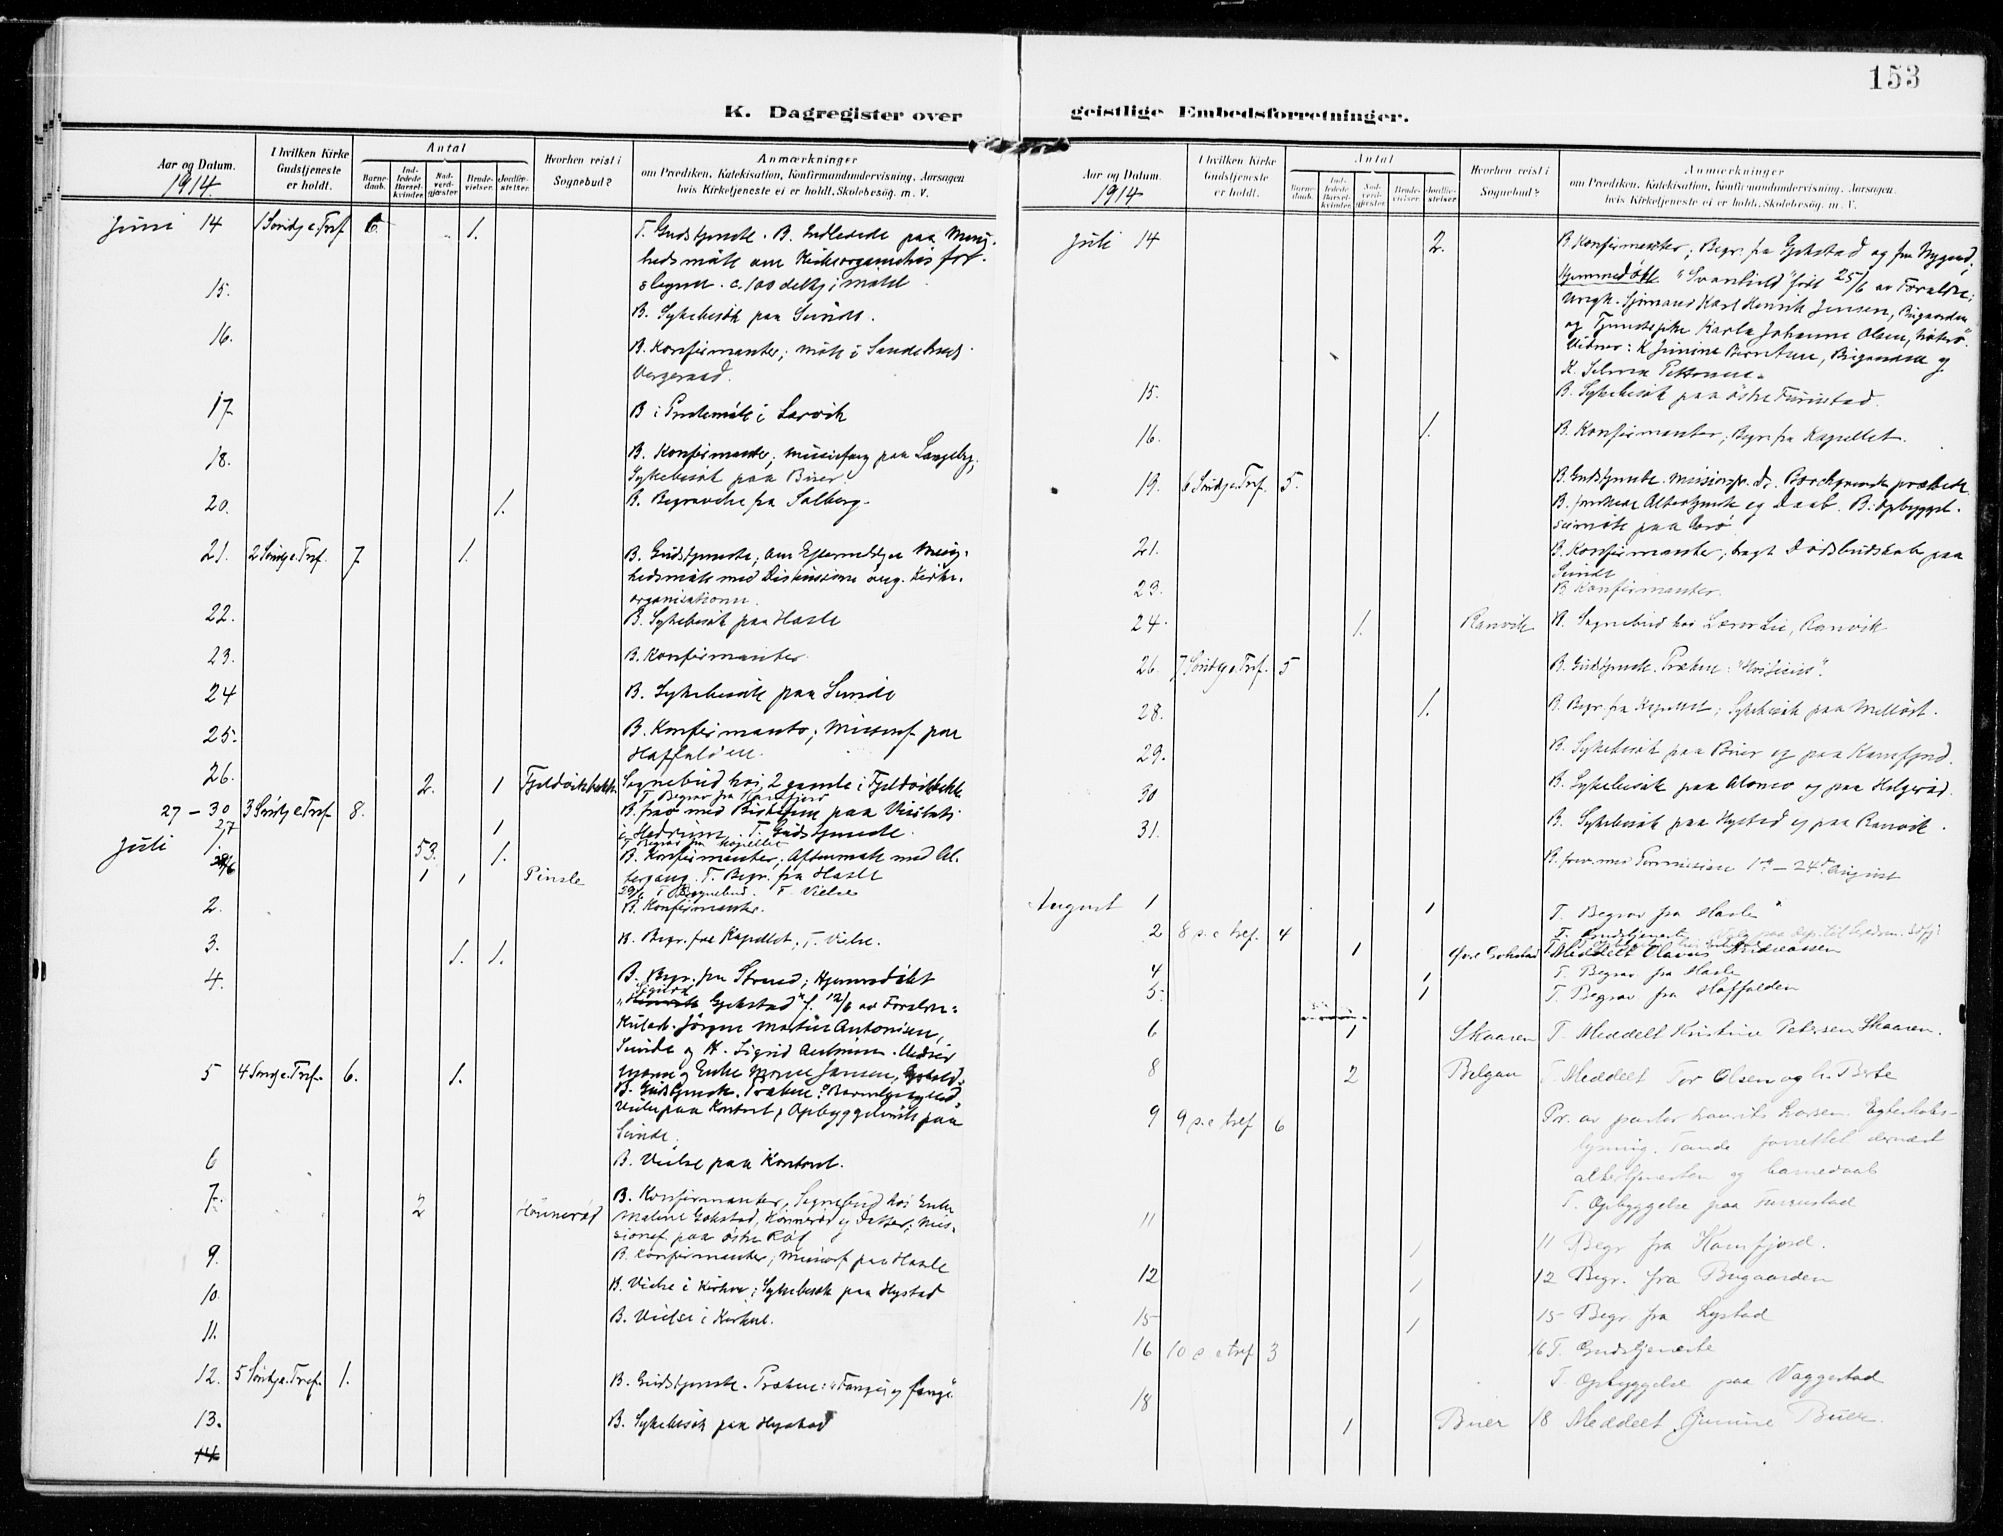 153
K. Dagregister over geistlige Embedsforretninger.
Aar og Datum. 1914.
I hvilken Kirke Gudstjeneste er holdt.
Antal
Barnedaab.
Indledede Barselkvinder.
Nadverdgjæster.
Brudevielser.
Jordfæstelser.
Hvorhen reist i Sognebud?
Anmærkninger
om Prædiken, Katekisation, Konfirmandundervisning, Aarsagen
hvis Kirketjeneste ei er holdt, Skolebesøg. m. V.
Juni 14 1 Søndg e. Tref 6 1. T. Gudstjeneste. B. Indledede paa Menig-
hedsmøte om Kirkeorganisations for-
slagene. c. 100 deltog i mötet
15. B. Sykebesök paa Sunde.
16. B. Konfirmanter; möte i Sandeherred
Vergeraad.
17. B i Prestemöte i Larvik
18. B. Konfirmanter, missionsf paa Langeby;
Sykebesök paa Buer.
20. 1. B. Begravelse fra Solberg.
21. 2 Søndg e. Tref. 7 1. B. Gudstjeneste, om Eftermiddagen Menig-
hedsmöte med Diskussion ang. Kirke-
organisationen.
22. B. Sykebesök paa Hasle
23. B. Konfirmanter.
24 B. Sykebesök paa Sunde
25. B. Konfirmanter; Missionsf paa
Haffalden.
26. 2. 1 Fjeldvikbakken Sognebud hos 2 gamle i Fjeldvikbakke
T. Begrav fra Kamfjord
27 – 30 3 Söndg e Tref 8. B. frav. med Biskopen paa Visitats
27 1 i Hedrum. T. Gudstjeneste.
T. Begrav fra Kapellet
Juli 1. 53. 1. B. Konfirmanter; Aftenmöte med Al-
29/6 1 1 Pinsle tergang. T. Begr. fra Hasle
29/6 T Sognebud. T. Vielse
2. B. Konfirmanter.
3. 1. 1. B. Begr. fra Kapellet. T. Vielse.
4. B. Begr. fra Strand; Hjemmedöbt
Sigurd
"Henrik Gjekstad" f. 12/6 av Foreldre:
Hulearb. Jörgen Martin Antonisen,
Sunde og H. Sigrid Antonisen.
5 4 Söndg e. Tref. 6. 1.
B. Gudstjeneste. Præken: "Barmhjertighed"
Vielse paa Kontoret, Opbyggelsemöte paa
Sunde.
6 B. Vielse paa Kontoret.
7. 2 Hönneröd B. Konfirmanter, Sognebud hos Enke
Maline Gokstad, Hönneröd og Datter; Mis-
sionsf paa östre Röd
9. B. Konfirmanter; Missionsf paa Hasle
10. B. Vielse i Kirken; Sykebesök paa Hystad
11. B. Vielse i Kirken.
12. 5 Söndg e. Tref. 1. B. Gudstjeneste. Præken: "Fanger og fange".
13. B. Sykebesök paa Hystad
14
Aar og Datum. 1914
I hvilken Kirke Gudstjeneste er holdt.
Antal
Barnedaab.
Indledede Barselkvinder.
Nadverdgjæster.
Brudevielser.
Jordfæstelser.
Hvorhen reist i Sognebud?
Anmærkninger
om Prædiken, Katekisation, Konfirmandundervisning, Aarsagen,
hvis Kirketjeneste ei er holdt, Skolebesøg. m. V.
Juli 14 2. B. Konfirmanter; Begr. fra Gjekstad og fra Nygaard;
Hjemmedöbt "Svanhild" født 25/6 av Forældre:
ungk. Sjömand Karl Henrik Jensen, Bugaarden
og Tjenestepike Karla Johanne Olsen,
Vidner: K. Jenine Berntsen, Bugaarden og
K. Selma Pettersen.
15. B. Sykebesök paa östre Furustad.
16. 1. B. Konfirmanter; Begr. fra Kapellet.
19. 6 Söndg e. Tref. 5. B. Gudstjeneste. Missionspr. Dr. Borchgrevink prækede.
B. forrettede Altertjeneste og Daab. B. Opbyggel-
sesmöte paa Orö
21. B. Konfirmanter; bragt Dödsbudskab paa
Sunde
23. B Konfirmanter.
24. 1. Ranvik B. Sognebud hos Lærer Lie, Ranvik
26. 7 Söndg e. Tref. 5 B. Gudstjeneste. Præken: "Hvisicius".
28. 1. B. Begr. fra Kapellet; Sykebesök paa Mellöst.
29. B. Sykebesök paa Buer og paa Kamfjord.
30 B. Sykebesök paa Alonso og paa Helgeröd.
31. B. Sykebesök paa Hystad og paa Ranvik.
B. frav. med Permission 1st – 24d August
August 1 1 T. Begrav fra Hasle
2 8 s. e tref. 4 T. Gudstjeneste
1 Øvre Gokstad T. Meddelt Olavus Andreassen
4 1 T. Begrav fra Hasle
5 1 T. Begrav fra Haffalden
6 1 Skaaren T. Meddelt Kristine Petersen Skaaren.
8 2 Belgau T. Meddelt Tor Olsen og h. Berte
9 9 s. e tref 6 Pr. av pastor Laurits Larsen.
lysning. Tande forrettet dernæst
altertjenesten og barnedaab
T. Opbyggelse paa Furustad
11 1 11 Begr fra Kamfjord.
12 1 12 Begr. fra Bugaarden
15 1 15 Begr fra Lystad
16 10 s e tref 3 16 T. Gudstjeneste
T. Opbyggelse paa Vaggestad
18 1 Buer 18 Meddelt Gunine Buer.